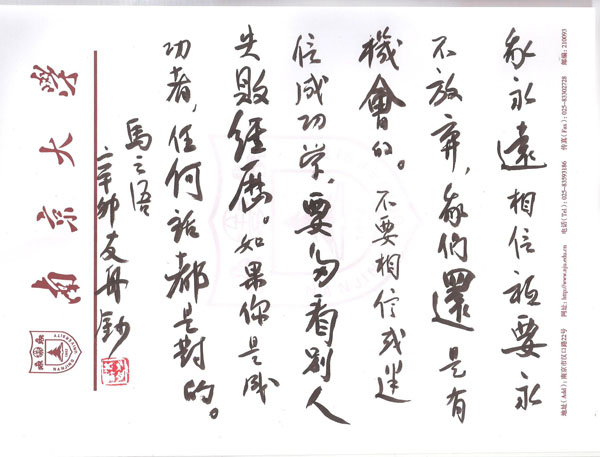 地址(Add):南京市汉口路22号 网址:http://www.nju.edu.cn 电话(Tel):025-83593186 传真(Fax):025-83302728 邮编:210093
我永遠相信祗要永
不放弃,我們還是有
機會的。不要相信或迷
信成功学,要多看别人
失敗經歷。如果你是成
功者,任何話都是對的。
馬云语
辛卯友舟鈔
南京大學